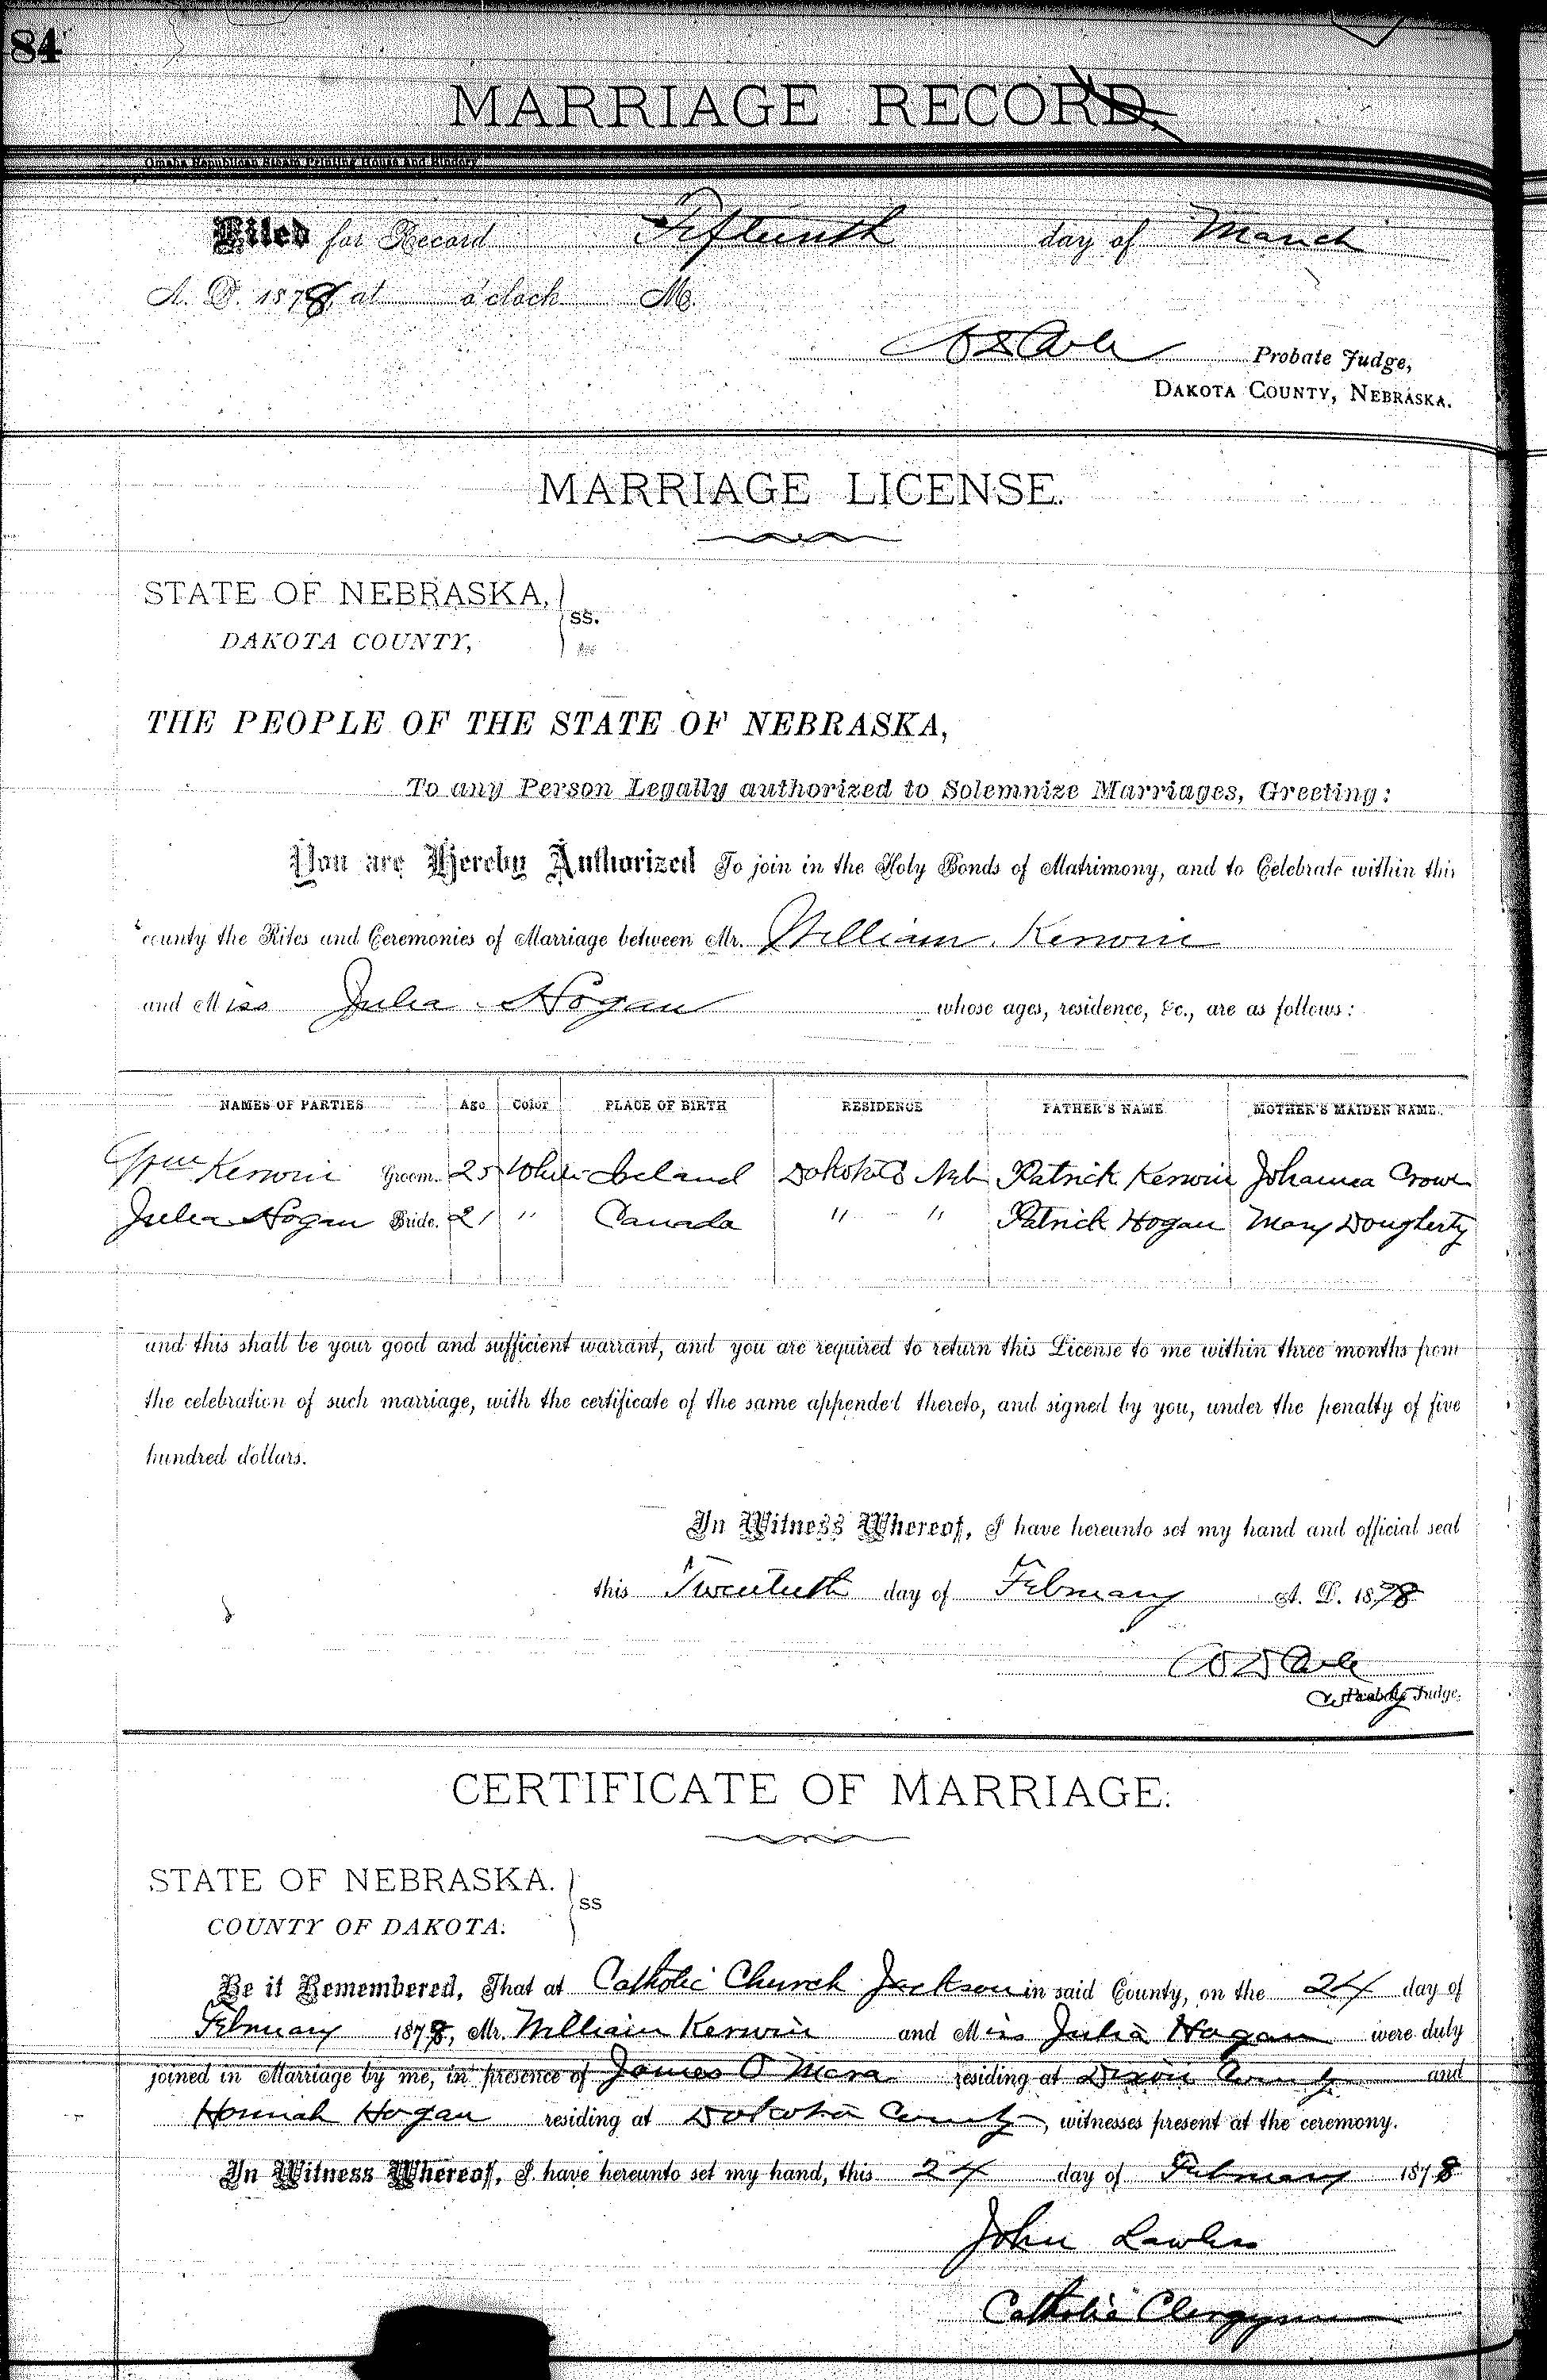 84
MARRIAGE RECORD.
Omaha Republican Steam Printing House and Bindery
Filed for Record Fifteenth day of March
A. D. 1878, at o'clock M.
Probate Judge,
DAKOTA COUNTY, NEBRASKA.
MARRIAGE LICENSE.
STATE OF NEBRASKA, } ss.
DAKOTA COUNTY,
THE PEOPLE OF THE STATE OF NEBRASKA,
To any Person Legally authorized to Solemnize Marriages, Greeting:
You are Hereby Authorized To join in the Holy Bonds of Matrimony, and to Celebrate within this
county the Rites and Ceremonies of Marriage between Mr. William Kerwin
and Miss Julia Hogan whose ages, residence, &c., are as follows:
NAMES OF PARTIES Age Color PLACE OF BIRTH RESIDENCE FATHER'S NAME MOTHER'S MAIDEN NAME.
Wm Kerwin Groom. 25 White Ireland Dakota Co Neb Patrick Kerwin Johanna Crowe
Julia Hogan Bride. 21 " Canada " " Patrick Hogan Mary Dougherty
and this shall be your good and sufficient warrant, and you are required to return this License to me within three months from
the celebration of such marriage, with the certificate of the same appended thereto, and signed by you, under the penalty of five
hundred dollars.
In Witness Whereof, I have hereunto set my hand and official seal
this Twentieth day of February A. D. 1878
Probate Judge.
CERTIFICATE OF MARRIAGE.
STATE OF NEBRASKA. } ss
COUNTY OF DAKOTA.
Be it Remembered, That at Catholic Church Jackson in said County, on the 24 day of
February 1878, Mr. William Kerwin and Miss Julia Hogan were duly
joined in Marriage by me, in presence of James O Mera residing at Dixon County and
Hannah Hogan residing at Dakota County, witnesses present at the ceremony.
In Witness Whereof, I have hereunto set my hand, this 24 day of February 1878
John Lawless
Catholic Clergyman